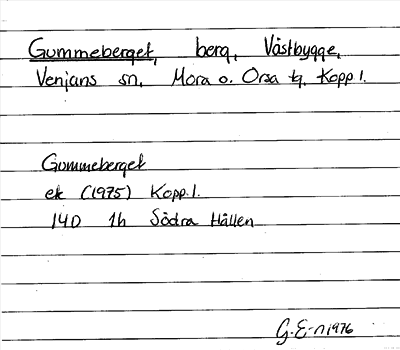 Gummeberget, berg, Västbygge,
Venjans sn, Mora o. Orsa tg, Kopp l.
Gummeberget
ek (1975) Kopp. l.
14D 1h Södra Hållen
G. E-n 1976